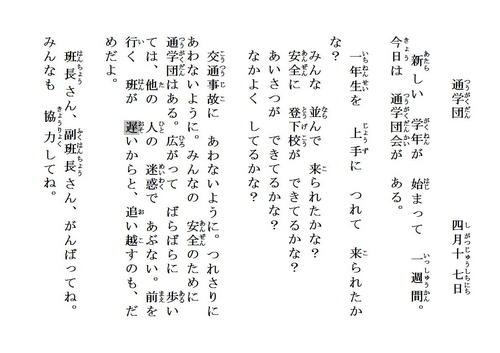 通学団　四月十七日
新しい　学年が　始まって　一週間。
今日は　通学団会が　ある。
一年生を　上手に　つれて　来られたか
な？
みんな　並んで　来られたかな？
安全に　登下校が　できてるかな？
あいさつが　できてるかな？
なかよく　してるかな？
交通事故に　あわないように。つれさりに
あわないように。みんなの　安全のために
通学団はある。広がって　ばらばらに　歩い
ては、他の　人の　迷惑で　あぶない。前を
行く　班が　遅いからと、追い越すのも、だ
めだよ。
班長さん、副班長さん、がんばってね。
みんなも　協力してね。